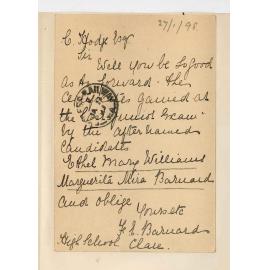 27/1/98
C. Hodge Esq
Sir
Will you be so good
as to forward the
gained at
the
by the after named
candidates
Ethel Mary Williams
Marguerita Mira Barnard
and oblige
Yours etc
F. S. Barnard
High School Clare.